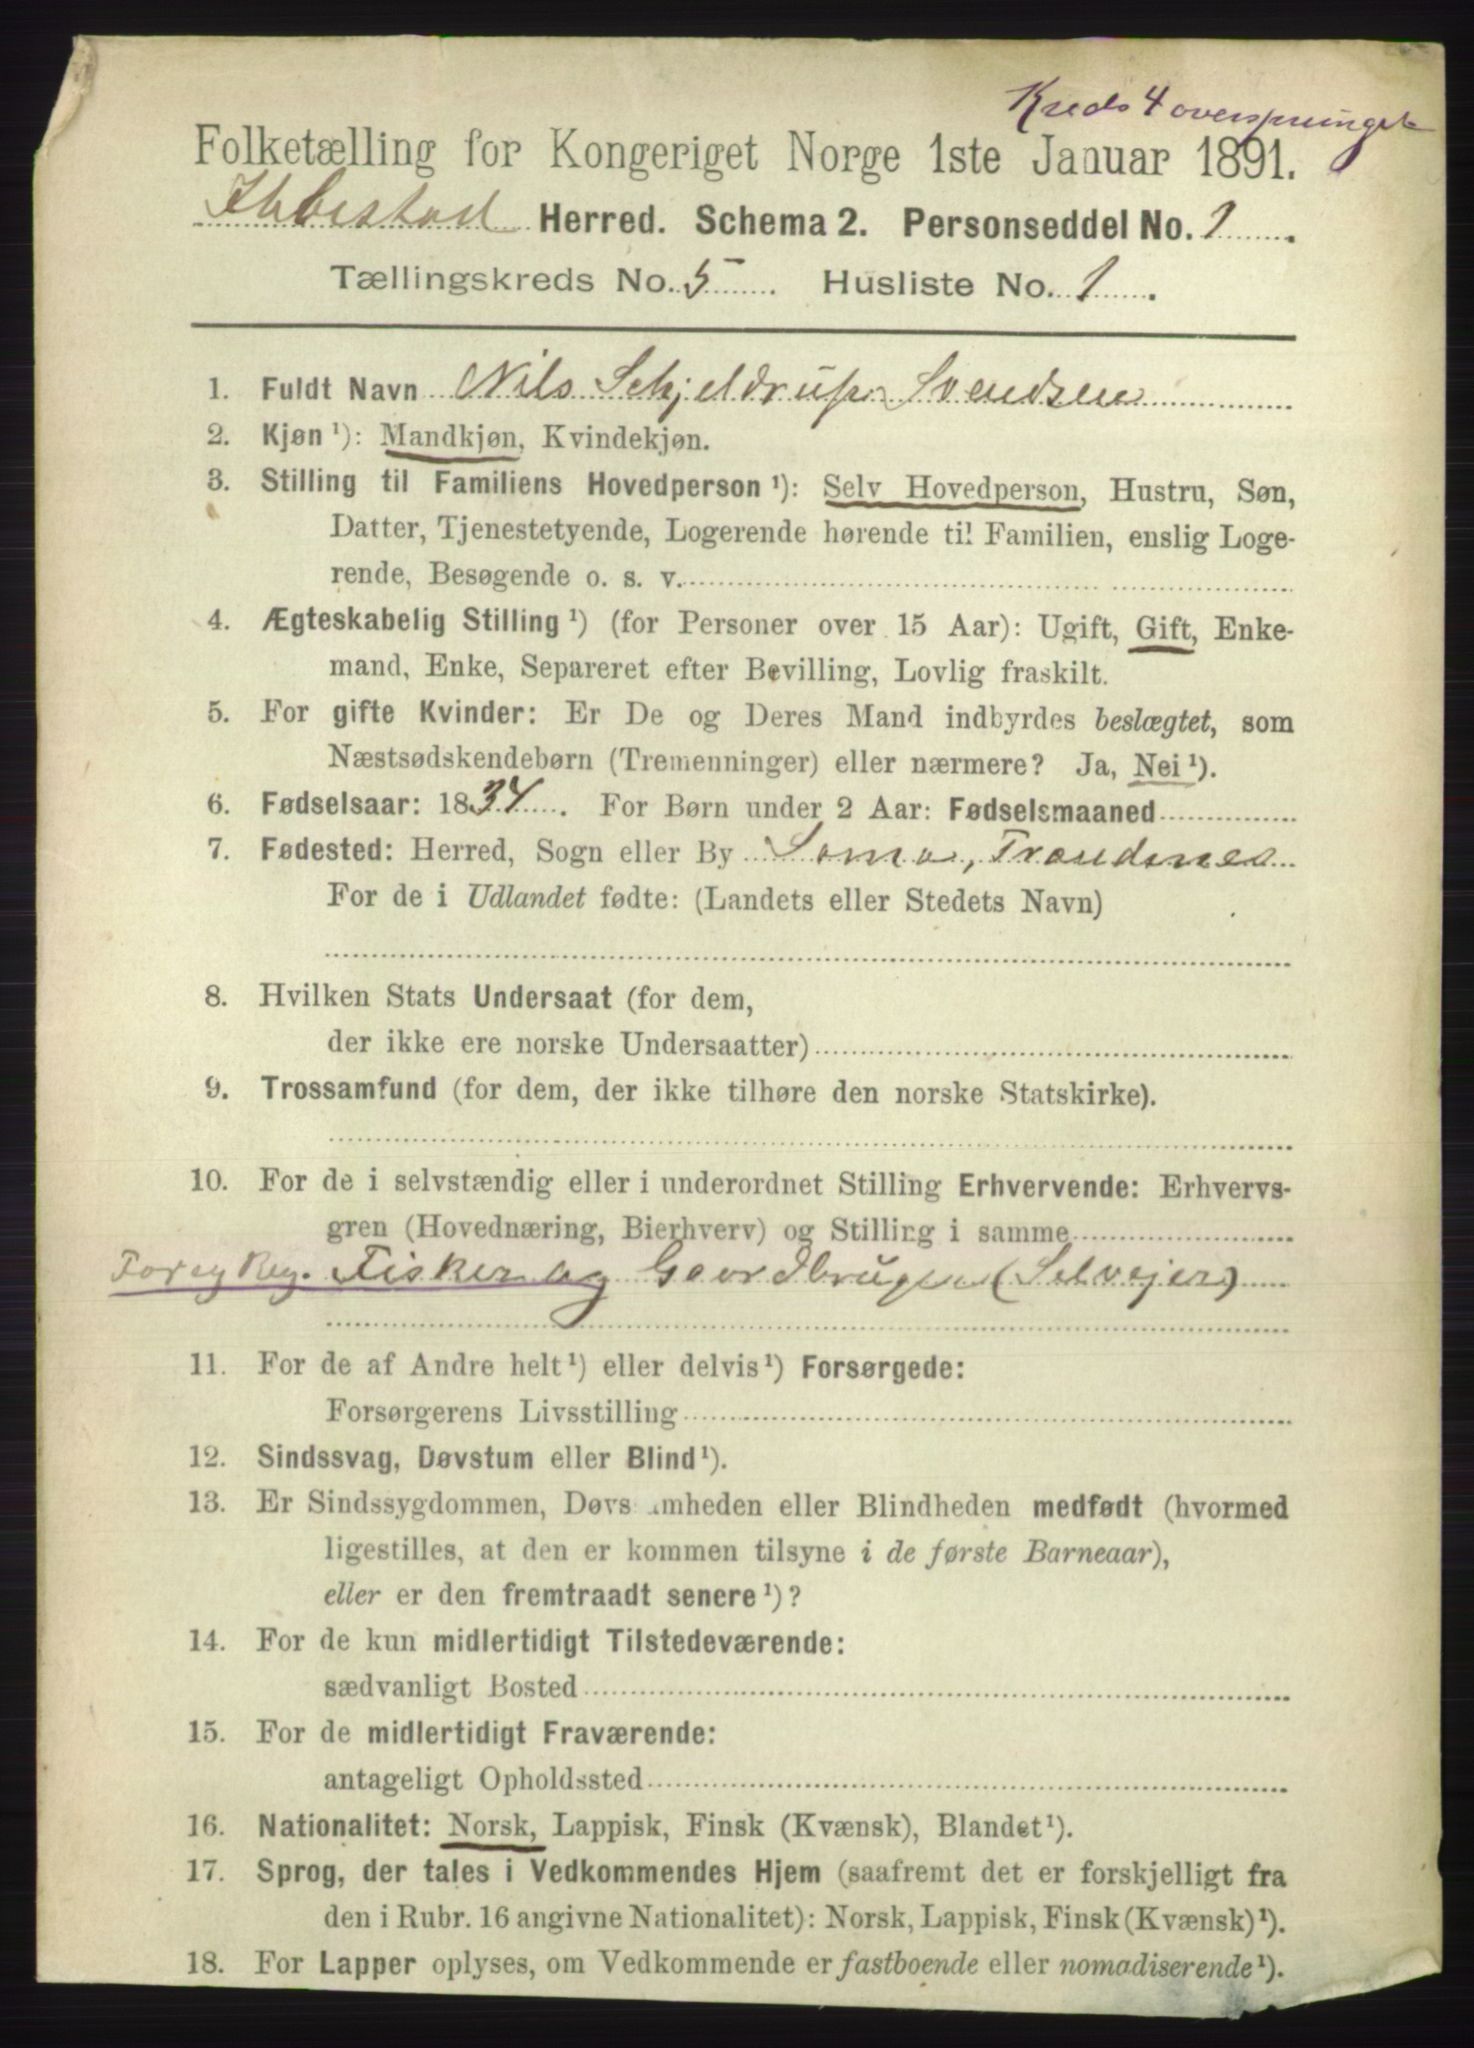 Kreds 4 oversprunget
Folketælling for Kongeriget Norge 1ste Januar 1891.
Ibbestad Herred. Schema 2. Personseddel No. 1
Tællingskreds No. 5 Husliste No. 1
1. Fuldt Navn Nils Schjeldrup Svendsen
2. Kjøn¹): Mandkjøn, Kvindekjøn.
3. Stilling til Familiens Hovedperson¹): Selv Hovedperson, Hustru, Søn,
Datter, Tjenestetyende, Logerende hørende til Familien, enslig Loge-
rende, Besøgende o. s. v.
4. Ægteskabelig Stilling¹) (for Personer over 15 Aar): Ugift, Gift, Enke-
mand, Enke, Separeret efter Bevilling, Lovlig fraskilt.
5. For gifte Kvinder: Er De og Deres Mand indbyrdes beslægtet, som
Næstsødskendebørn (Tremenninger) eller nærmere? Ja, Nei¹).
6. Fødselsaar: 1834. For Børn under 2 Aar: Fødselsmaaned
7. Fødested: Herred, Sogn eller By Sama, Trondenes
For de i Udlandet fødte: (Landets eller Stedets Navn)
8. Hvilken Stats Undersaat (for dem,
der ikke ere norske Undersaatter)
9. Trossamfund (for dem, der ikke tilhøre den norske Statskirke).
10. For de i selvstændig eller i underordnet Stilling Erhvervende: Erhvervs-
gren (Hovednæring, Bierhverv) og Stilling i samme
Fisker og Gaardbruger (Selvejer)
11. For de af Andre helt¹) eller delvis¹) Forsørgede:
Forsørgerens Livsstilling
12. Sindssvag, Døvstum eller Blind¹).
13. Er Sindssygdommen, Døvs mheden eller Blindheden medfødt (hvormed
ligestilles, at den er kommen tilsyne i de første Barneaar),
eller er den fremtraadt senere¹)?
14. For de kun midlertidigt Tilstedeværende:
sædvanligt Bosted
15. For de midlertidigt Fraværende:
antageligt Opholdssted
16. Nationalitet: Norsk, Lappisk, Finsk (Kvænsk), Blandet¹).
17. Sprog, der tales i Vedkommendes Hjem (saafremt det er forskjelligt fra
den i Rubr. 16 angivne Nationalitet): Norsk, Lappisk, Finsk (Kvænsk)¹).
18. For Lapper oplyses, om Vedkommende er fastboende eller nomadiserende¹).